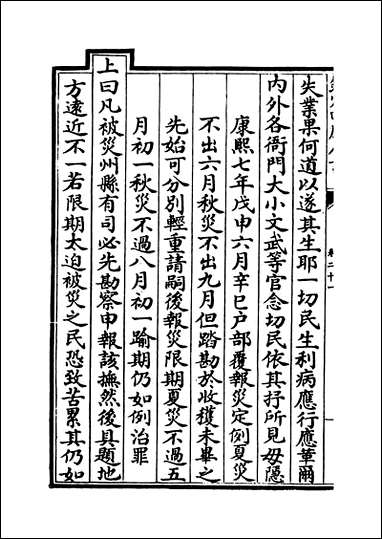 失業果何道以遂其生耶一切民生利病應行應革爾
内外各衙門大小文武等官念切民依其抒所見毋隱
康熙七年戊申六月辛巳户部覆報災定例夏災
不出六月秋災不出九月但踏勘於收穫未畢之
先始可分别輕重請嗣後報災限期夏災不過五
月初一秋災不過八月初一踰期仍如例治罪
上曰凡被災州縣有司必先勘察申報該撫然後具題地
方遠近不一若限期太迫被災之民恐致苦累其仍如